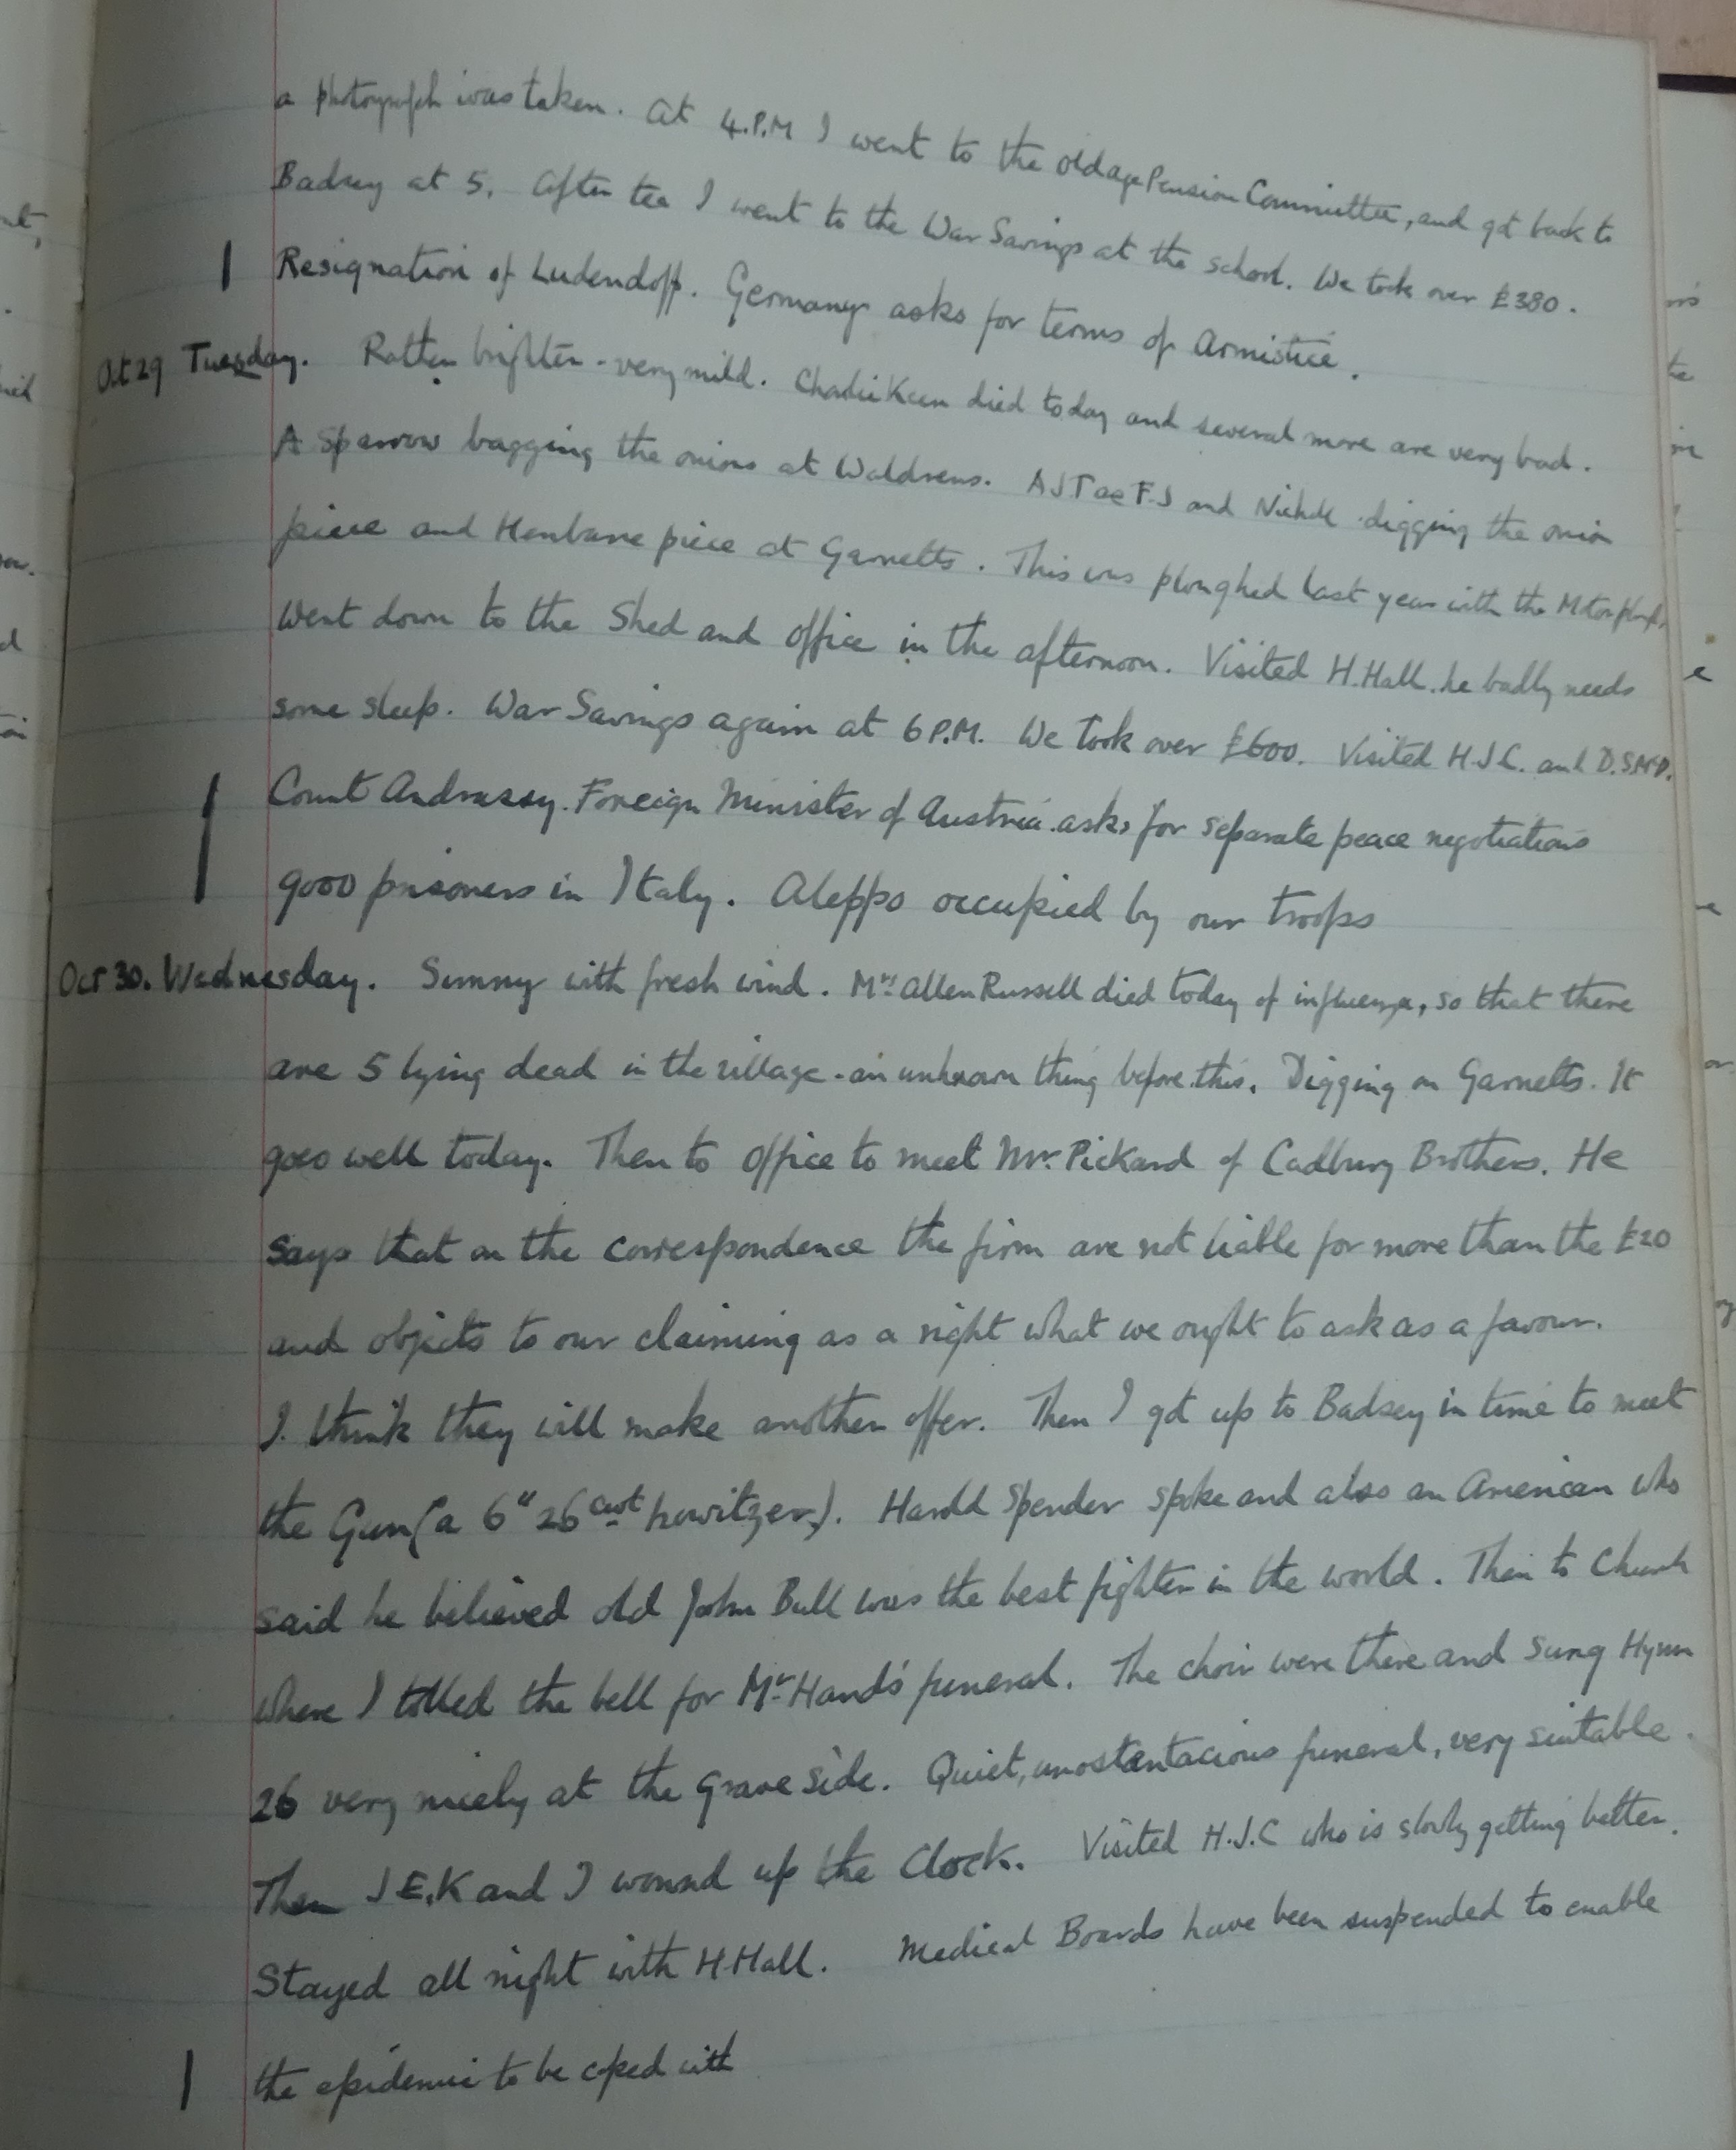 a photograph was taken. At 4.P.M I went to the old age Pension Committee, and got back to
Badsey at 5. After tea I went to the War Savings at the school. We took over £380.
Resignation of Ludendoff. Germany asks for terms of Armistice.
Oct 29 Tuesday. Rather brighter - very mild. Charlie Keen died today and several more are very bad.
A Sparrow bagging the onions at Waldrens. AJT FJ and digging the onion
piece and Henbane piece at Garnetts. This was ploughed last year with the Motor plough.
Went down to the Shed and office in the afternoon. Visited H.Hall. he badly needs
some sleep. War Savings again at 6 P.M. We took over £600. Visited H.J.C. and
Count Andrassy. Foreign Minister of Austria. asks for separate peace negotiations
9000 prisoners in Italy. Aleppo occupied by our troops
Oct 30. Wednesday. Sunny with fresh wind. Mrs Allen Russell died today of influenza, so that there
are 5 lying dead in the village - an unknown thing before this. Digging on Garnetts. It
goes well today. Then to office to meet Mr. Pickard of Cadbury Brothers. He
says that on the correspondence the firm are not liable for more than the £20
and objects to our claiming as a right what we ought to ask as a favour.
I. think they will make another offer. Then I got up to Badsey in time to meet
the Gun (a 6" 26 cwt howitzer). Harold Spender spoke and also an American who
said he believed old John Bull was the best fighter in the world. Then to Church
where I tolled the bell for Mr Hand's funeral. The choir were there and sung Hymn
26 very nicely at the grave side. Quiet, unostentacious funeral, very suitable.
Then J E.K and I wound up the Clock. Visited H.J.C who is slowly getting better.
Stayed all night with H.Hall. Medical Boards have been suspended to enable
the epidemic to be coped with